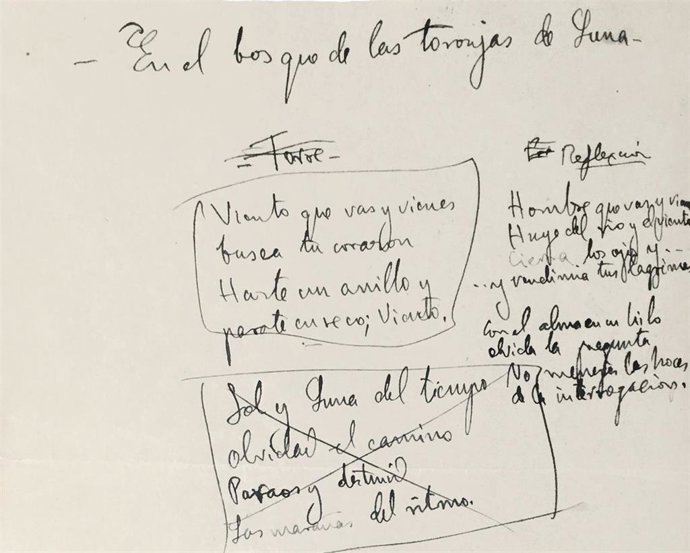 - En el bosque de las toronjas de Luna -
- Torre -
Viento que vas y vienes
busca tu corazón
Hazte un anillo y
parate en seco; Viento.
Sol y Luna del tiempo
olvidad el camino
Paraos y destruid
las marañas del ritmo.
Reflexión
Hombre que vas y vienes
Huye del rio y el viento
Cierra los ojos y ...
... y vendimia tus lagrimas
Con el alma en un hilo
olvida la pregunta
No menees las hoces
de la interrogacion.